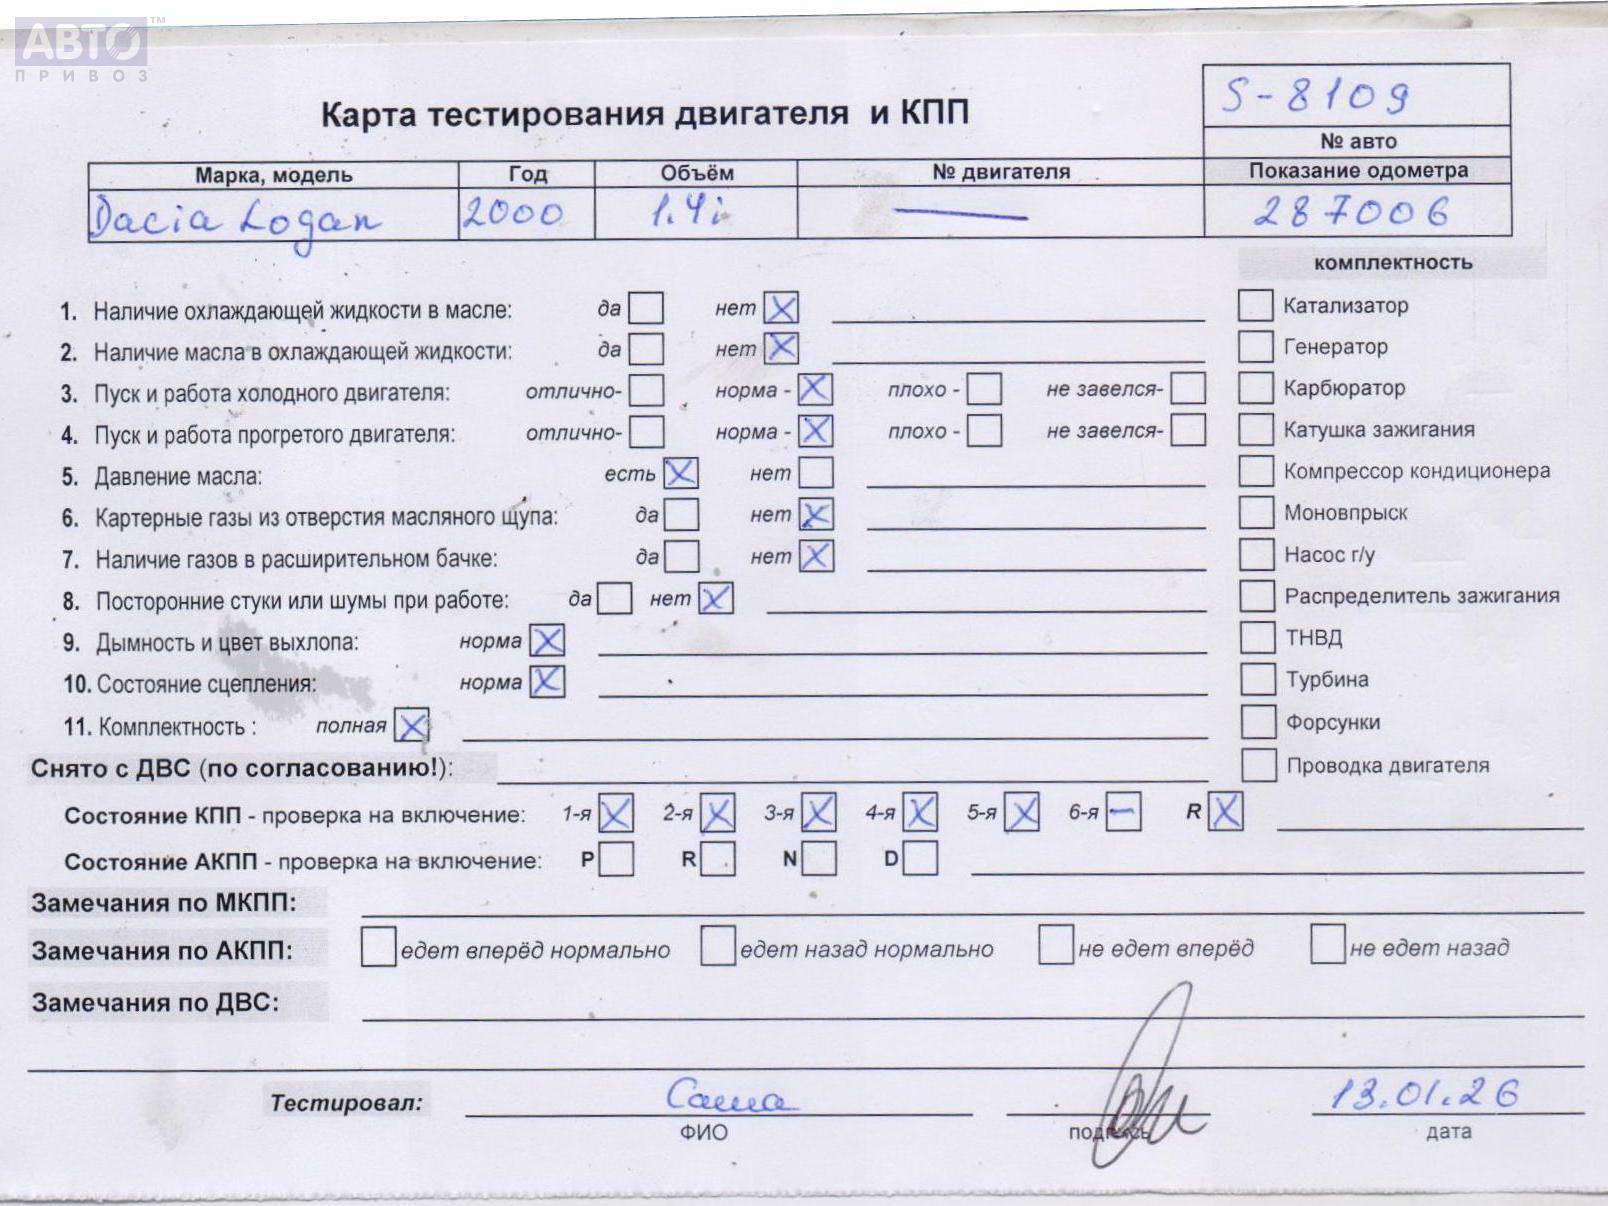 АВТО™
ПРИВОЗ
S-8109
Карта тестирования двигателя и КПП
№ авто
Марка, модель Год Объём № двигателя Показание одометра
Dacia Logan 2000 1.4i — 287006
комплектность
1. Наличие охлаждающей жидкости в масле: да нет X Катализатор
2. Наличие масла в охлаждающей жидкости: да нет X Генератор
3. Пуск и работа холодного двигателя: отлично- норма - X плохо - не завелся- Карбюратор
4. Пуск и работа прогретого двигателя: отлично- норма - X плохо - не завелся- Катушка зажигания
5. Давление масла: есть X нет Компрессор кондиционера
6. Картерные газы из отверстия масляного щупа: да нет X Моновпрыск
7. Наличие газов в расширительном бачке: да нет X Насос г/у
8. Посторонние стуки или шумы при работе: да нет X Распределитель зажигания
9. Дымность и цвет выхлопа: норма X ТНВД
10. Состояние сцепления: норма X Турбина
11. Комплектность : полная X Форсунки
Снято с ДВС (по согласованию!): Проводка двигателя
Состояние КПП - проверка на включение: 1-я X 2-я X 3-я X 4-я X 5-я X 6-я — R X
Состояние АКПП - проверка на включение: P R N D
Замечания по МКПП:
Замечания по АКПП: едет вперёд нормально едет назад нормально не едет вперёд не едет назад
Замечания по ДВС:
Тестировал: Саша 13.01.26
ФИО подпись дата